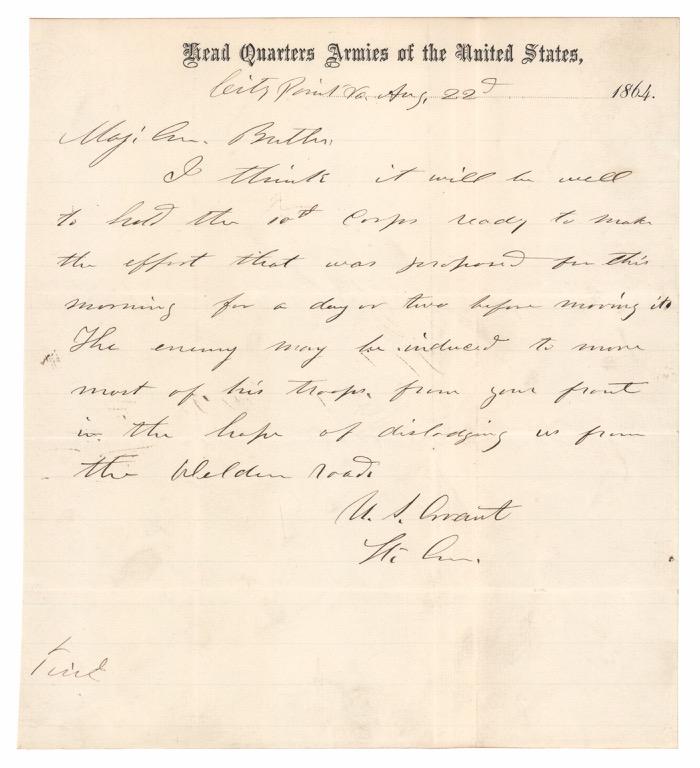 Head Quarters Armies of the United States,
City Point Va. Aug. 22d 1864.
Maj. Gen. Butler,
I think it will be well
to hold the 10th Corps ready to make
the effort that was proposed for this
morning for a day or two before moving it.
The enemy may be induced to move
most of his troops from your front
in the hope of dislodging us from
the Weldon road.
U. S. Grant
Lt. Gen.